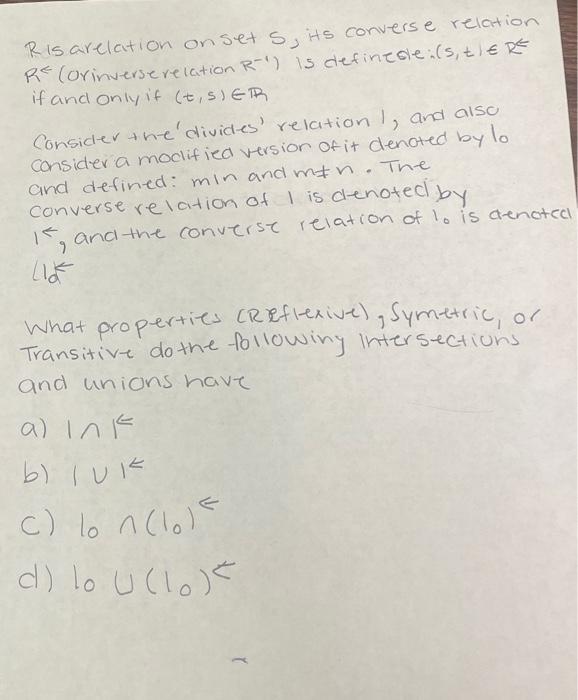 R is a relation on set S, its converse relation
R← (or inverse relation R⁻¹) is defined: (s,t) ∈ R←
if and only if (t,s) ∈ R
Consider the 'divides' relation |, and also
consider a modified version of it denoted by |₀
and defined: m|n and m≠n. The
converse relation of | is denoted by
|←, and the converse relation of |₀ is denoted
(|₀)←
What properties (Reflexive), Symetric, or
Transitive do the following intersections
and unions have
a) | ∩ |←
b) | ∪ |←
c) |₀ ∩ (|₀)←
d) |₀ ∪ (|₀)←